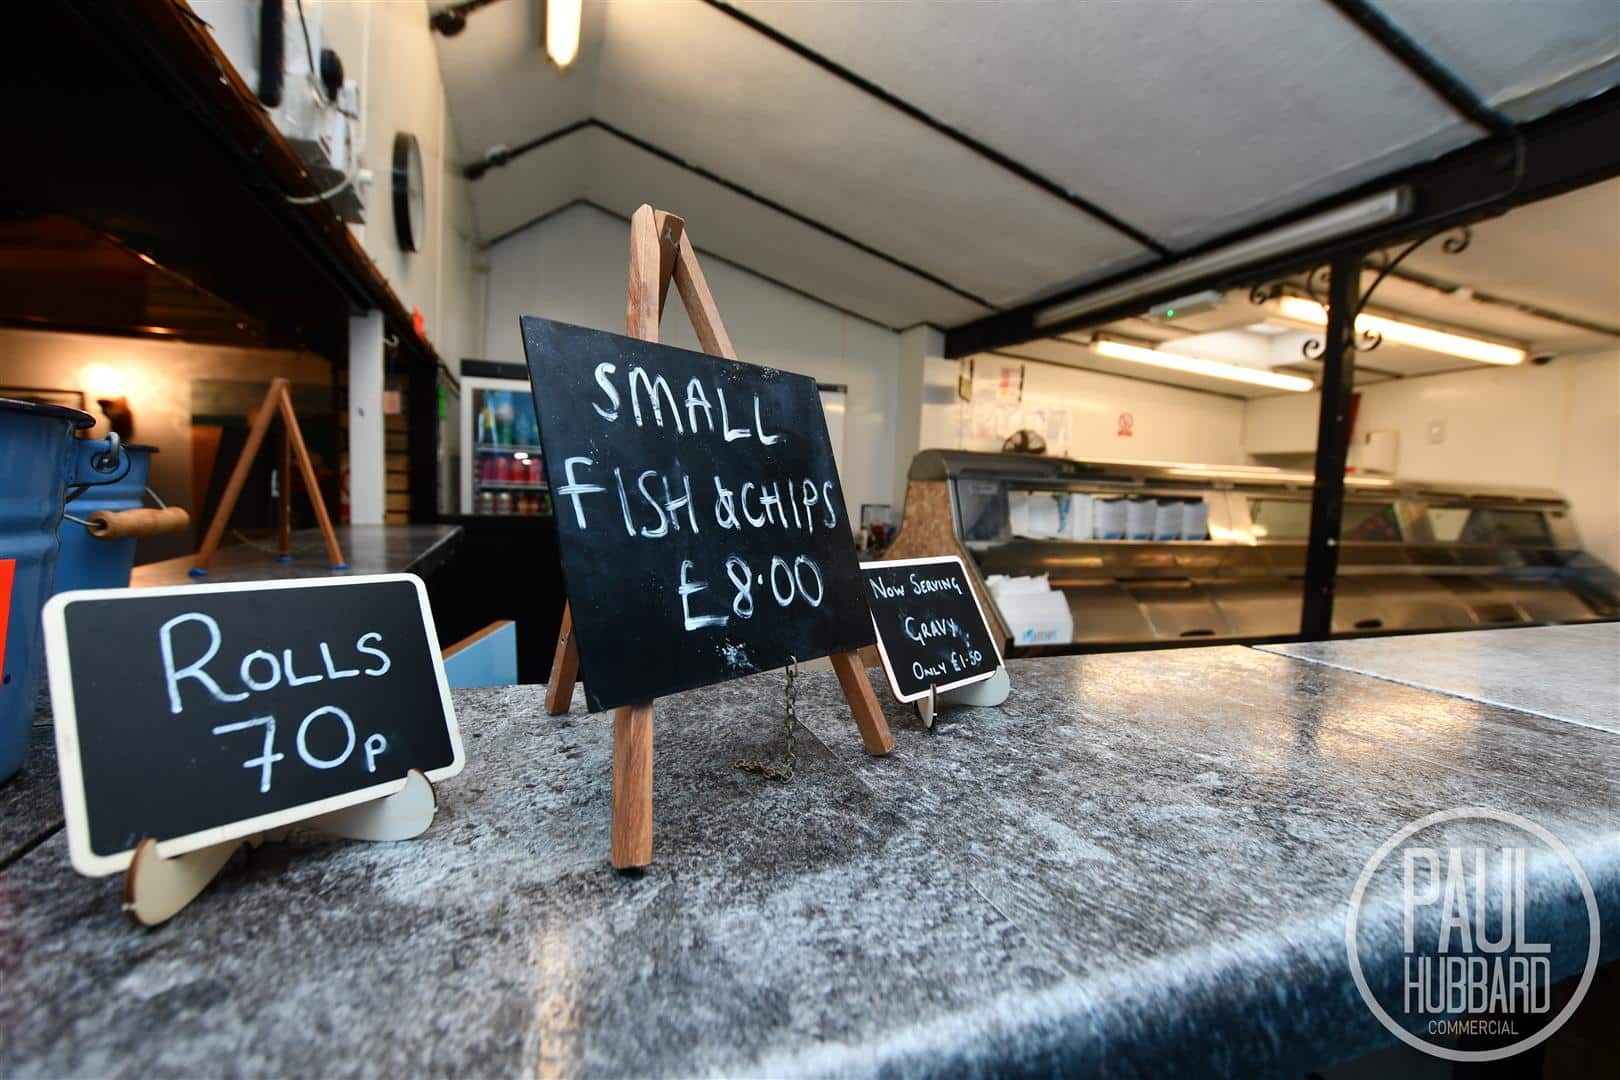 ROLLS
70p
SMALL
FISH & CHIPS
£8.00
NOW SERVING
GRAVY
ONLY £1.50
PAUL
HUBBARD
COMMERCIAL